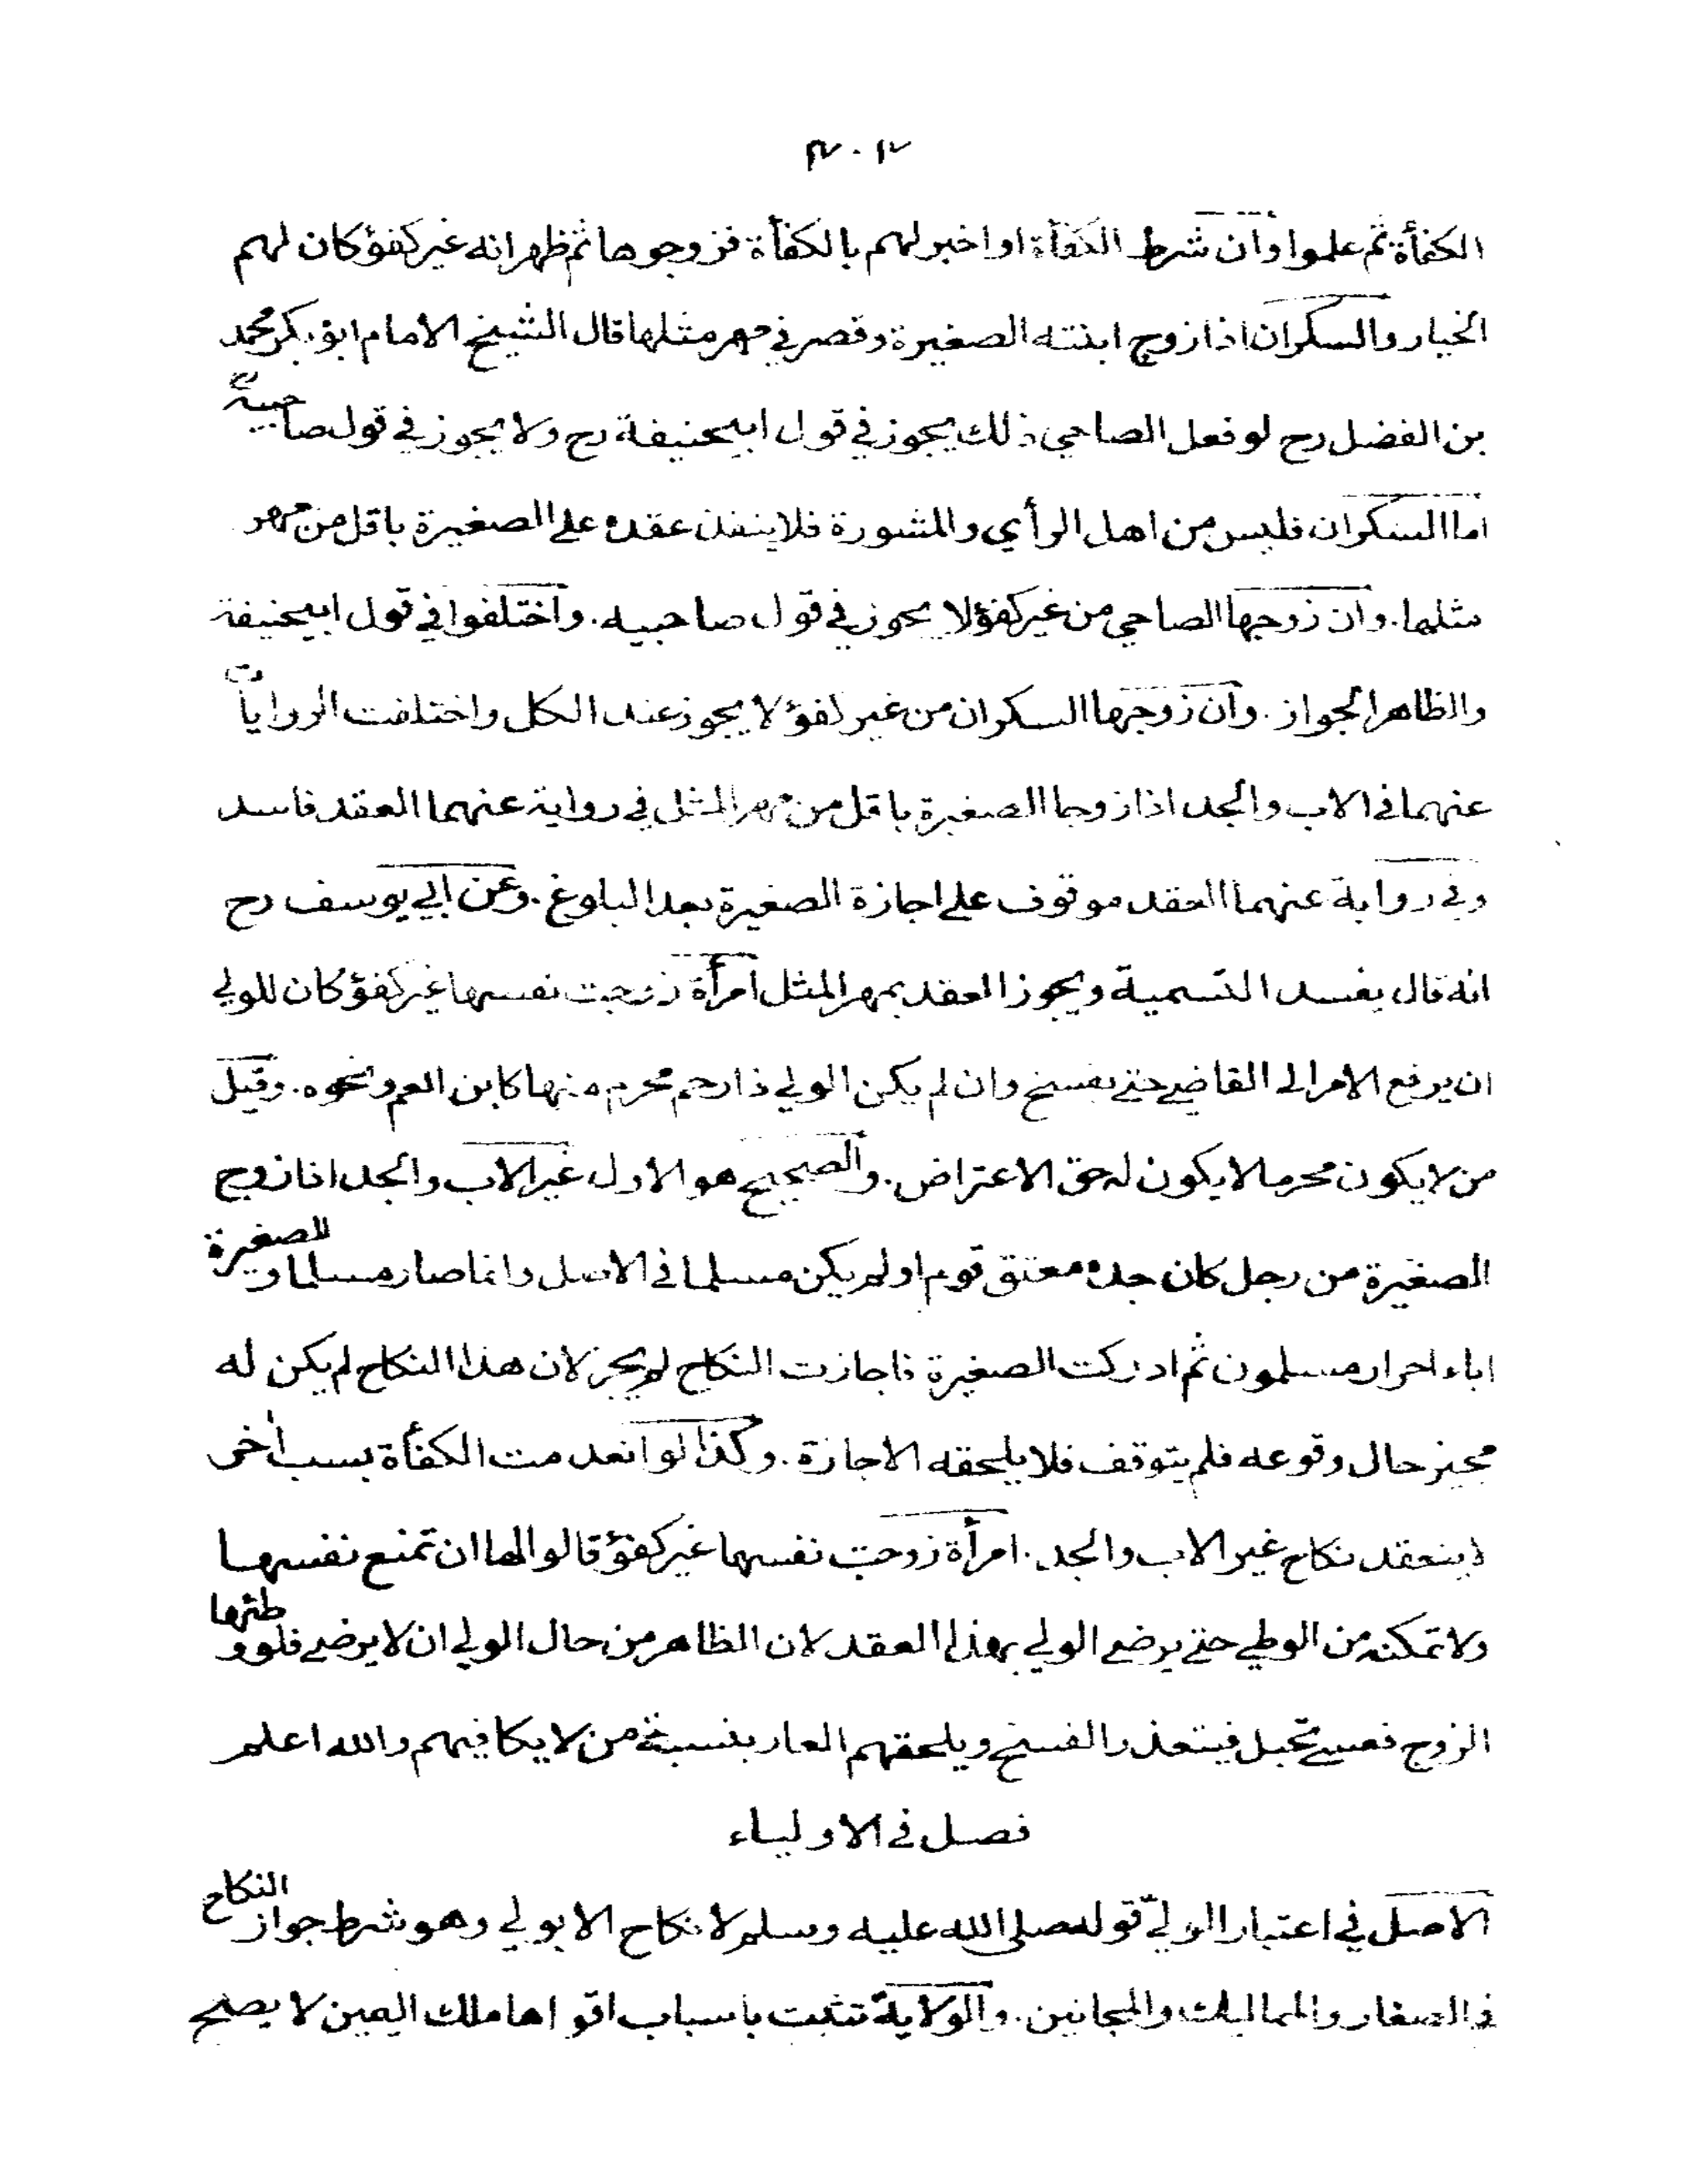 ٤٠٢
الكفأة ثم علموا وان شرط الكفأة او اخبر لهم بالكفأة فزوجوها ثم ظهر انه غير كفؤ كان لهم
الخيار والسكران اذا زوج ابنته الصغيرة وقصر في مهر مثلها قال الشيخ الامام ابو بكر محمد
بن الفضل رح لو فعل الصاحي ذلك يجوز في قول ابيحنيفة رح ولا يجوز في قول صاحبيه
اما السكران فليس من اهل الرأي والمشورة فلا ينفذ عقده على الصغيرة باقل من مهر
مثلها. وان زوجها الصاحي من غير كفؤ لا يجوز في قول صاحبيه. واختلفوا في قول ابيحنيفة
والظاهر الجواز. وان زوجها السكران من غير كفؤ لا يجوز عند الكل واختلفت الروايات
عنهما في الاب والجد اذا زوجا الصغيرة باقل من مهر المثل في رواية عنهما العقد فاسد
وفي رواية عنهما العقد موقوف على اجازة الصغيرة بعد البلوغ. وعن ابي يوسف رح
انه قال يفسد التسمية ويجوز العقد بمهر المثل امرأة زوجت نفسها غير كفؤ كان للولي
ان يرفع الامر الى القاضي حتى يفسخ وان لم يكن الولي ذا رحم محرم منها كابن العم ونحوه. وقيل
من لا يكون محرما لا يكون له حق الاعتراض. والصحيح هو الاول غير الاب والجد اذا زوج
الصغيرة من رجل كان جده معتق قوم او لم يكن مسلما في الاصل وانما صار مسلما وللصغيرة
اباء احرار مسلمون ثم ادركت الصغيرة فاجازت النكاح لم يجز لان هذا النكاح لم يكن له
مجيز حال وقوعه فلم يتوقف فلا يلحقه الاجازة. وكذا لو انعدمت الكفأة بسبب اخر
لا ينعقد نكاح غير الاب والجد. امرأة زوجت نفسها غير كفؤ قالوا لها ان تمنع نفسها
ولا تمكنه من الوطي حتى يرضى الولي بهذا العقد لان الظاهر من حال الولي ان لا يرضى فلو وطئها
الزوج فعسى تحبل فيتعذر الفسخ ويلحقهم العار بنسبة من لا يكافيهم والله اعلم
فصل في الاولياء
الاصل في اعتبار الولي قوله صلى الله عليه وسلم لا نكاح الا بولي وهو شرط جواز النكاح
في الصغار والمماليك والمجانين. والولاية تثبت باسباب اقواها ملك اليمين لا يصلح